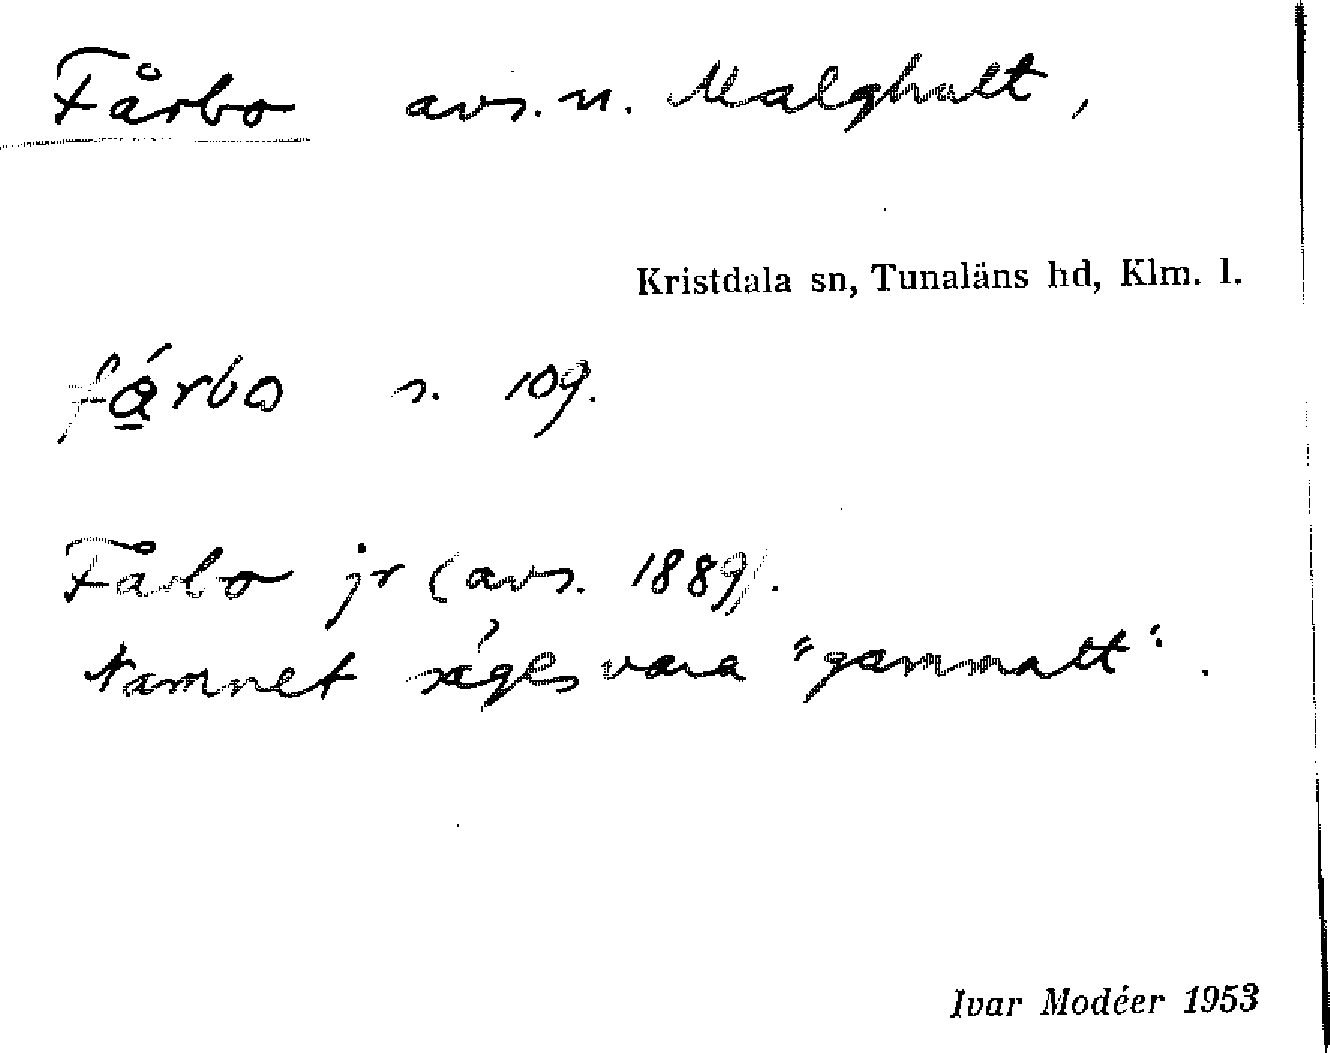 Fårbo avs. u. Malghult,
Kristdala sn, Tunaläns hd, Klm. l.
fárbo s. 109.
Fårbo jr (avs. 1889).
Namnet säges vara "gammalt".
Ivar Modéer 1953